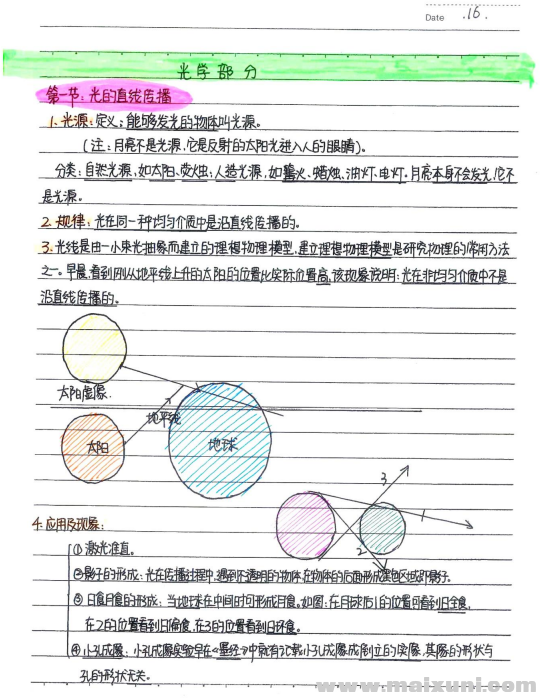 Date .16.
光学部分
第一节:光的直线传播
1. 光源:定义:能够发光的物体叫光源。
(注:月亮不是光源,它是反射的太阳光进入人的眼睛)。
分类:自然光源,如太阳、萤火虫;人造光源,如篝火、蜡烛、油灯、电灯。月亮本身不会发光,它不
是光源。
2. 规律:光在同一种均匀介质中是沿直线传播的。
3. 光线是由一小束光抽象而建立的理想物理模型,建立理想物理模型是研究物理的常用方法
之一。早晨,看到刚从地平线上升的太阳的位置比实际位置高,该现象说明:光在非均匀介质中不是
沿直线传播的。
太阳虚像
地平线
太阳
地球
3
1
2
4. 应用及现象:
① 激光准直。
②影子的形成:光在传播过程中,遇到不透明的物体,在物体的后面形成黑色区域即影子。
③ 日食月食的形成:当地球在中间时可形成月食。如图:在月球后1的位置可看到日全食,
在2的位置看到日偏食,在3的位置看到日环食。
④ 小孔成像:小孔成像实验早在《墨经》中就有记载小孔成像成倒立的实像,其像的形状与
孔的形状无关。
www.maixuni.com